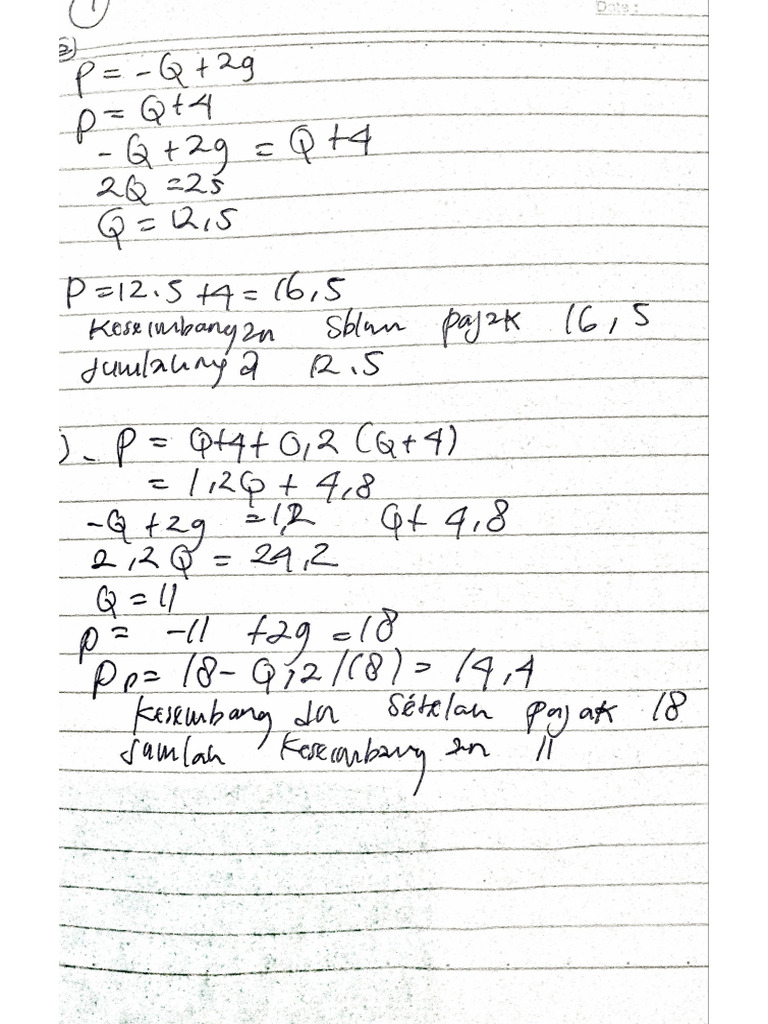 1
Date :
a)
P = -Q + 29
P = Q + 4
-Q + 29 = Q + 4
2Q = 25
Q = 12,5
P = 12.5 + 4 = 16,5
Keseimbangan Sblum pajak 16,5
Jumlahnya 12.5
) - P = Q + 4 + 0,2 (Q + 4)
= 1,2Q + 4,8
-Q + 29 = 1,2 Q + 4,8
2,2Q = 24,2
Q = 11
P = -11 + 29 = 18
Pp = 18 - 0,2 (18) = 14,4
Keseimbangan Setelah pajak 18
Jumlah Keseimbangan 11